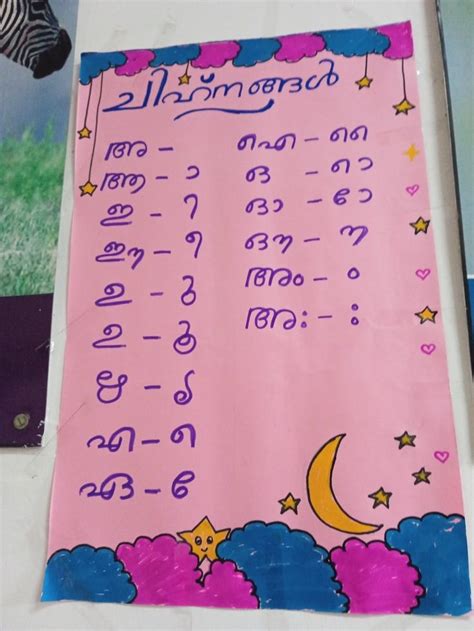 ചിഹ്നങ്ങൾ
അ –
ആ – ാ
ഇ – ി
ഈ – ീ
ഉ – ു
ഉ – ൂ
ഋ – ൃ
എ – െ
ഏ – േ
ഐ – ൈ
ഒ – ൊ
ഓ – ോ
ഔ – ൗ
അം – ം
അഃ – ഃ